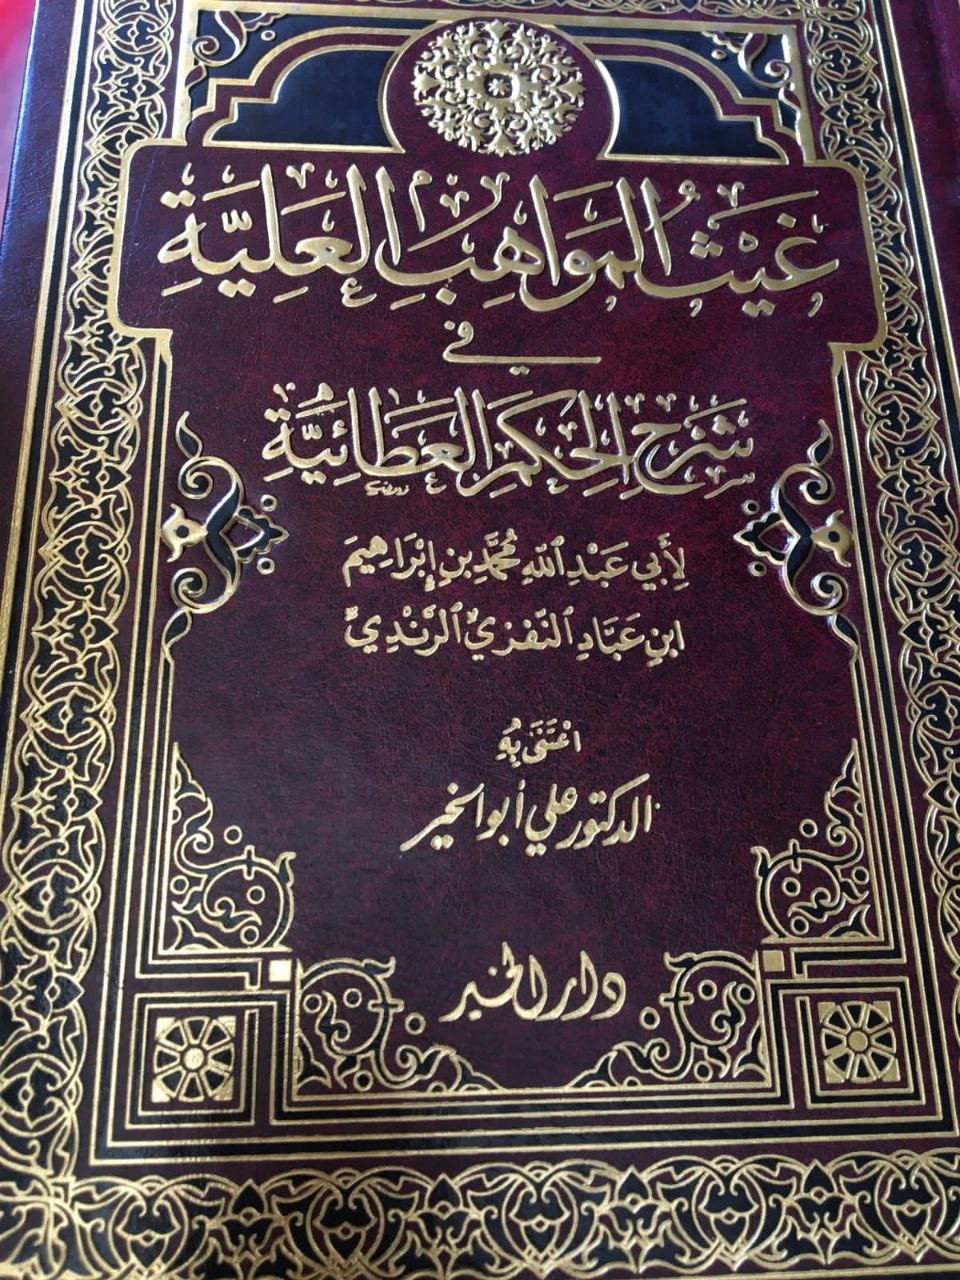 غَيْثُ المَوَاهِبِ العَلِيَّةِ
في
شَرْحِ الحِكَمِ العَطَائِيَّةِ
لِأَبي عَبْدِ اللهِ مُحَمَّدِ بنِ إِبْرَاهِيمَ
ابنِ عَبَّادِ النَّفْزِيِّ الرُّنْدِيِّ
اعْتَنَى بِهِ
الدكتور علي أبو الخير
دار الخير